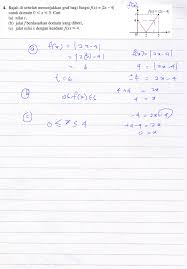 4. Rajah di sebelah menunjukkan graf bagi fungsi f(x) = |2x − 4|
untuk domain 0 ≤ x ≤ 5. Cari
(a) nilai t,
(b) julat f berdasarkan domain yang diberi,
(c) julat nilai x dengan keadaan f(x) ≤ 4.
f(x)
f(x) = |2x − 4|
(a) f(x) = |2x-4|
= |2(5)-4|
= 6
t = 6
(b) 0≤f(x)≤6
(c) 0 ≤ x ≤ 4
f(x) = |2x-4|
4 = |2x-4|
±4 = 2x-4
4+4 = 2x
x = 4
-4 = 2x-4
-4+4 = 2x
0 = x